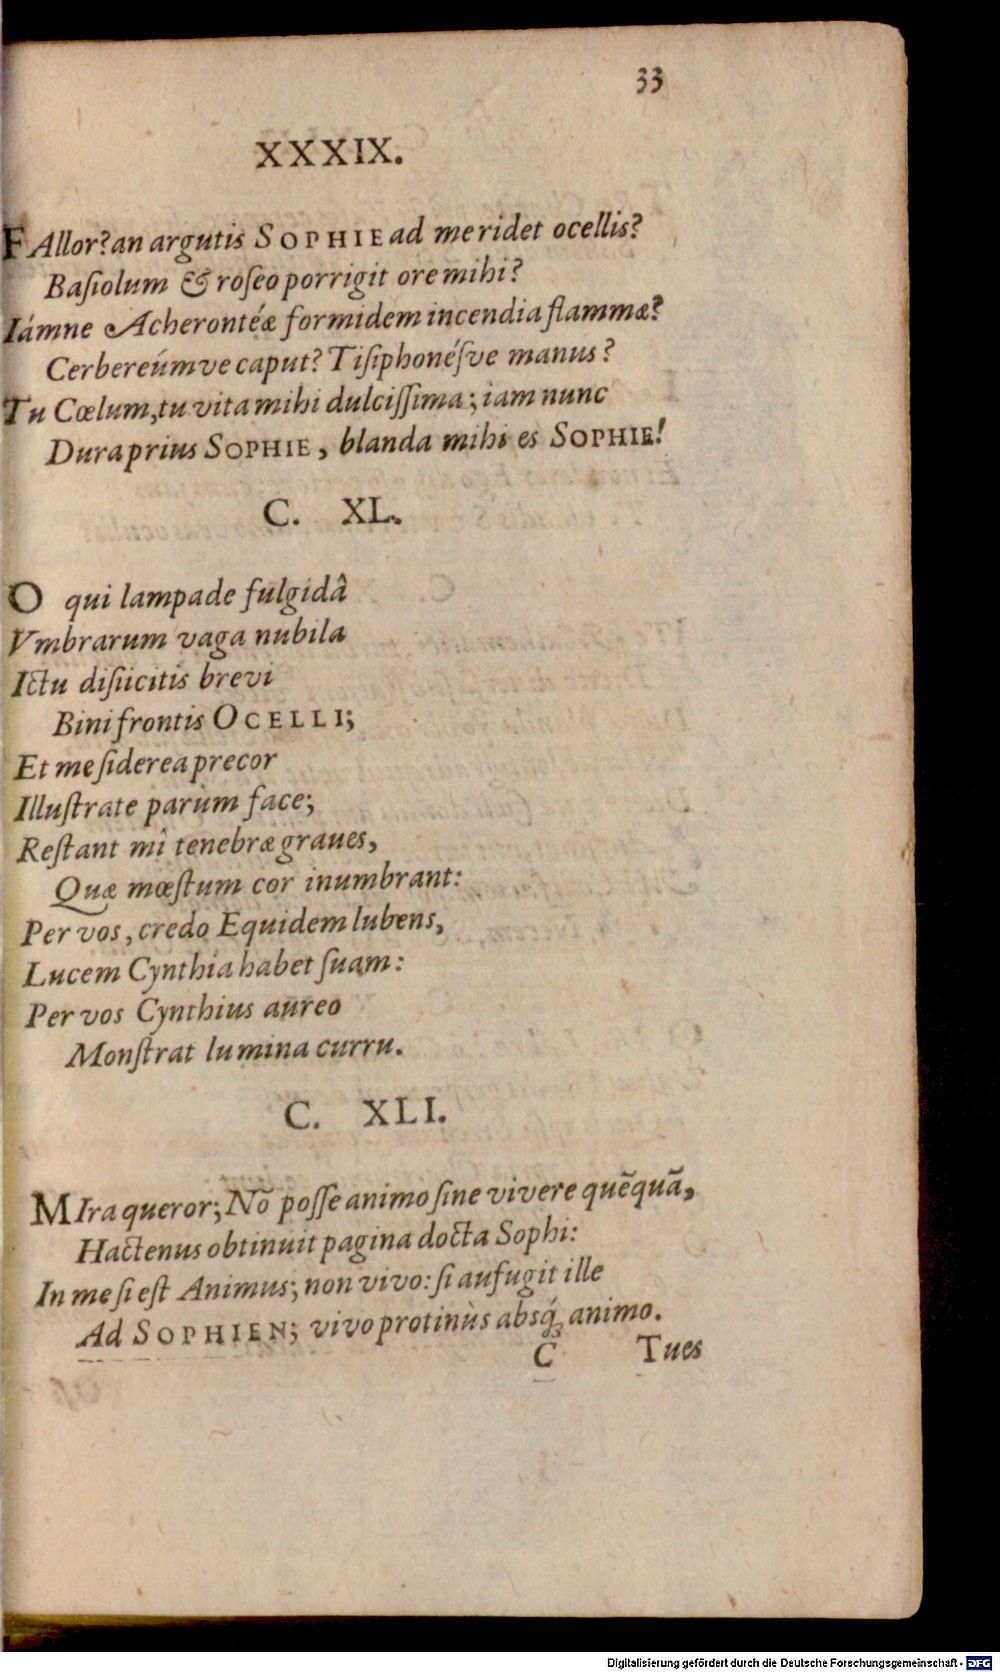 33
XXXIX.
FAllor? an argutis SOPHIE ad me ridet ocellis?
Baſiolum & roſeo porrigit ore mihi?
Iámne Acherontéæ formidem incendia flammæ?
Cerbereúmve caput? Tiſiphonéſve manus?
Tu Cœlum, tu vita mihi dulciſſima; iam nunc
Dura prius SOPHIE, blanda mihi es SOPHIE!
C. XL.
O qui lampade fulgidâ
Vmbrarum vaga nubila
Ictu diſiicitis brevi
Bini frontis OCELLI;
Et me ſiderea precor
Illuſtrate parùm face;
Reſtant mî tenebræ graues,
Quæ mœſtum cor inumbrant:
Per vos, credo Equidem lubens,
Lucem Cynthia habet ſuam:
Per vos Cynthius aureo
Monſtrat lumina curru.
C. XLI.
MIra queror; Nõ poſſe animo ſine vivere quẽquã,
Hactenus obtinuit pagina docta Sophi:
In me ſi eſt Animus; non vivo: ſi aufugit ille
Ad SOPHIEN; vivo protinùs absq́; animo.
C Tu es
Digitalisierung gefördert durch die Deutsche Forschungsgemeinschaft - DFG